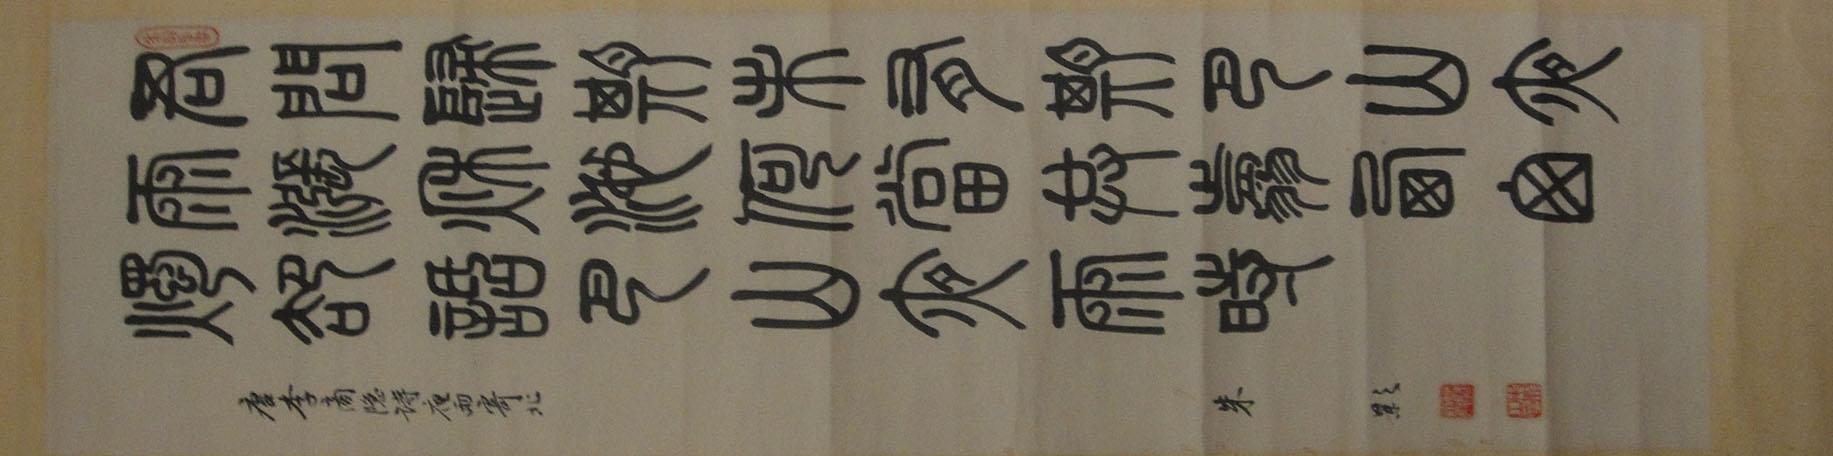 君問歸期未有期巴山夜
雨漲秋池何當共剪西窗
燭卻話巴山夜雨時
唐李商隱詩夜雨寄北 朱